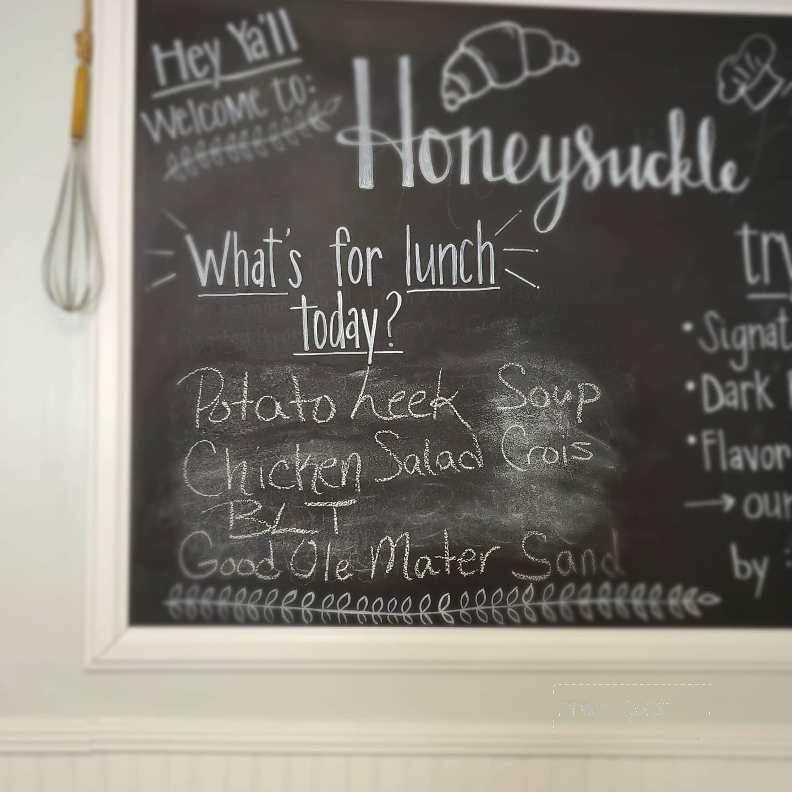 Hey Ya'll
Welcome to:
Honeysuckle
What's for lunch
today?
Potato Leek Soup
Chicken Salad Crois
BLT
Good Ole Mater Sand
try
• Signat
• Dark
• Flavor
→ our
by